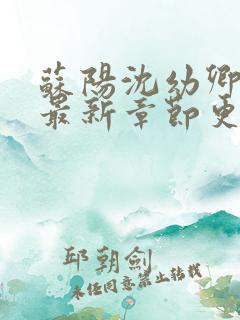 蘇陽沈幼卿
最新章節更
邱朝劍
未經同意禁止轉載